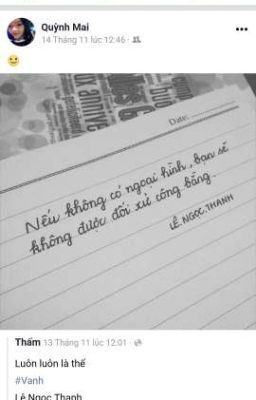 Quỳnh Mai
14 Tháng 11 lúc 12:46
Date:
Nếu không có ngoại hình, bạn sẽ
không được đối xử công bằng.
LÊ.NGỌC.THANH
Thấm 13 Tháng 11 lúc 12:01
Luôn luôn là thế
#Vanh
Lê Ngọc Thanh